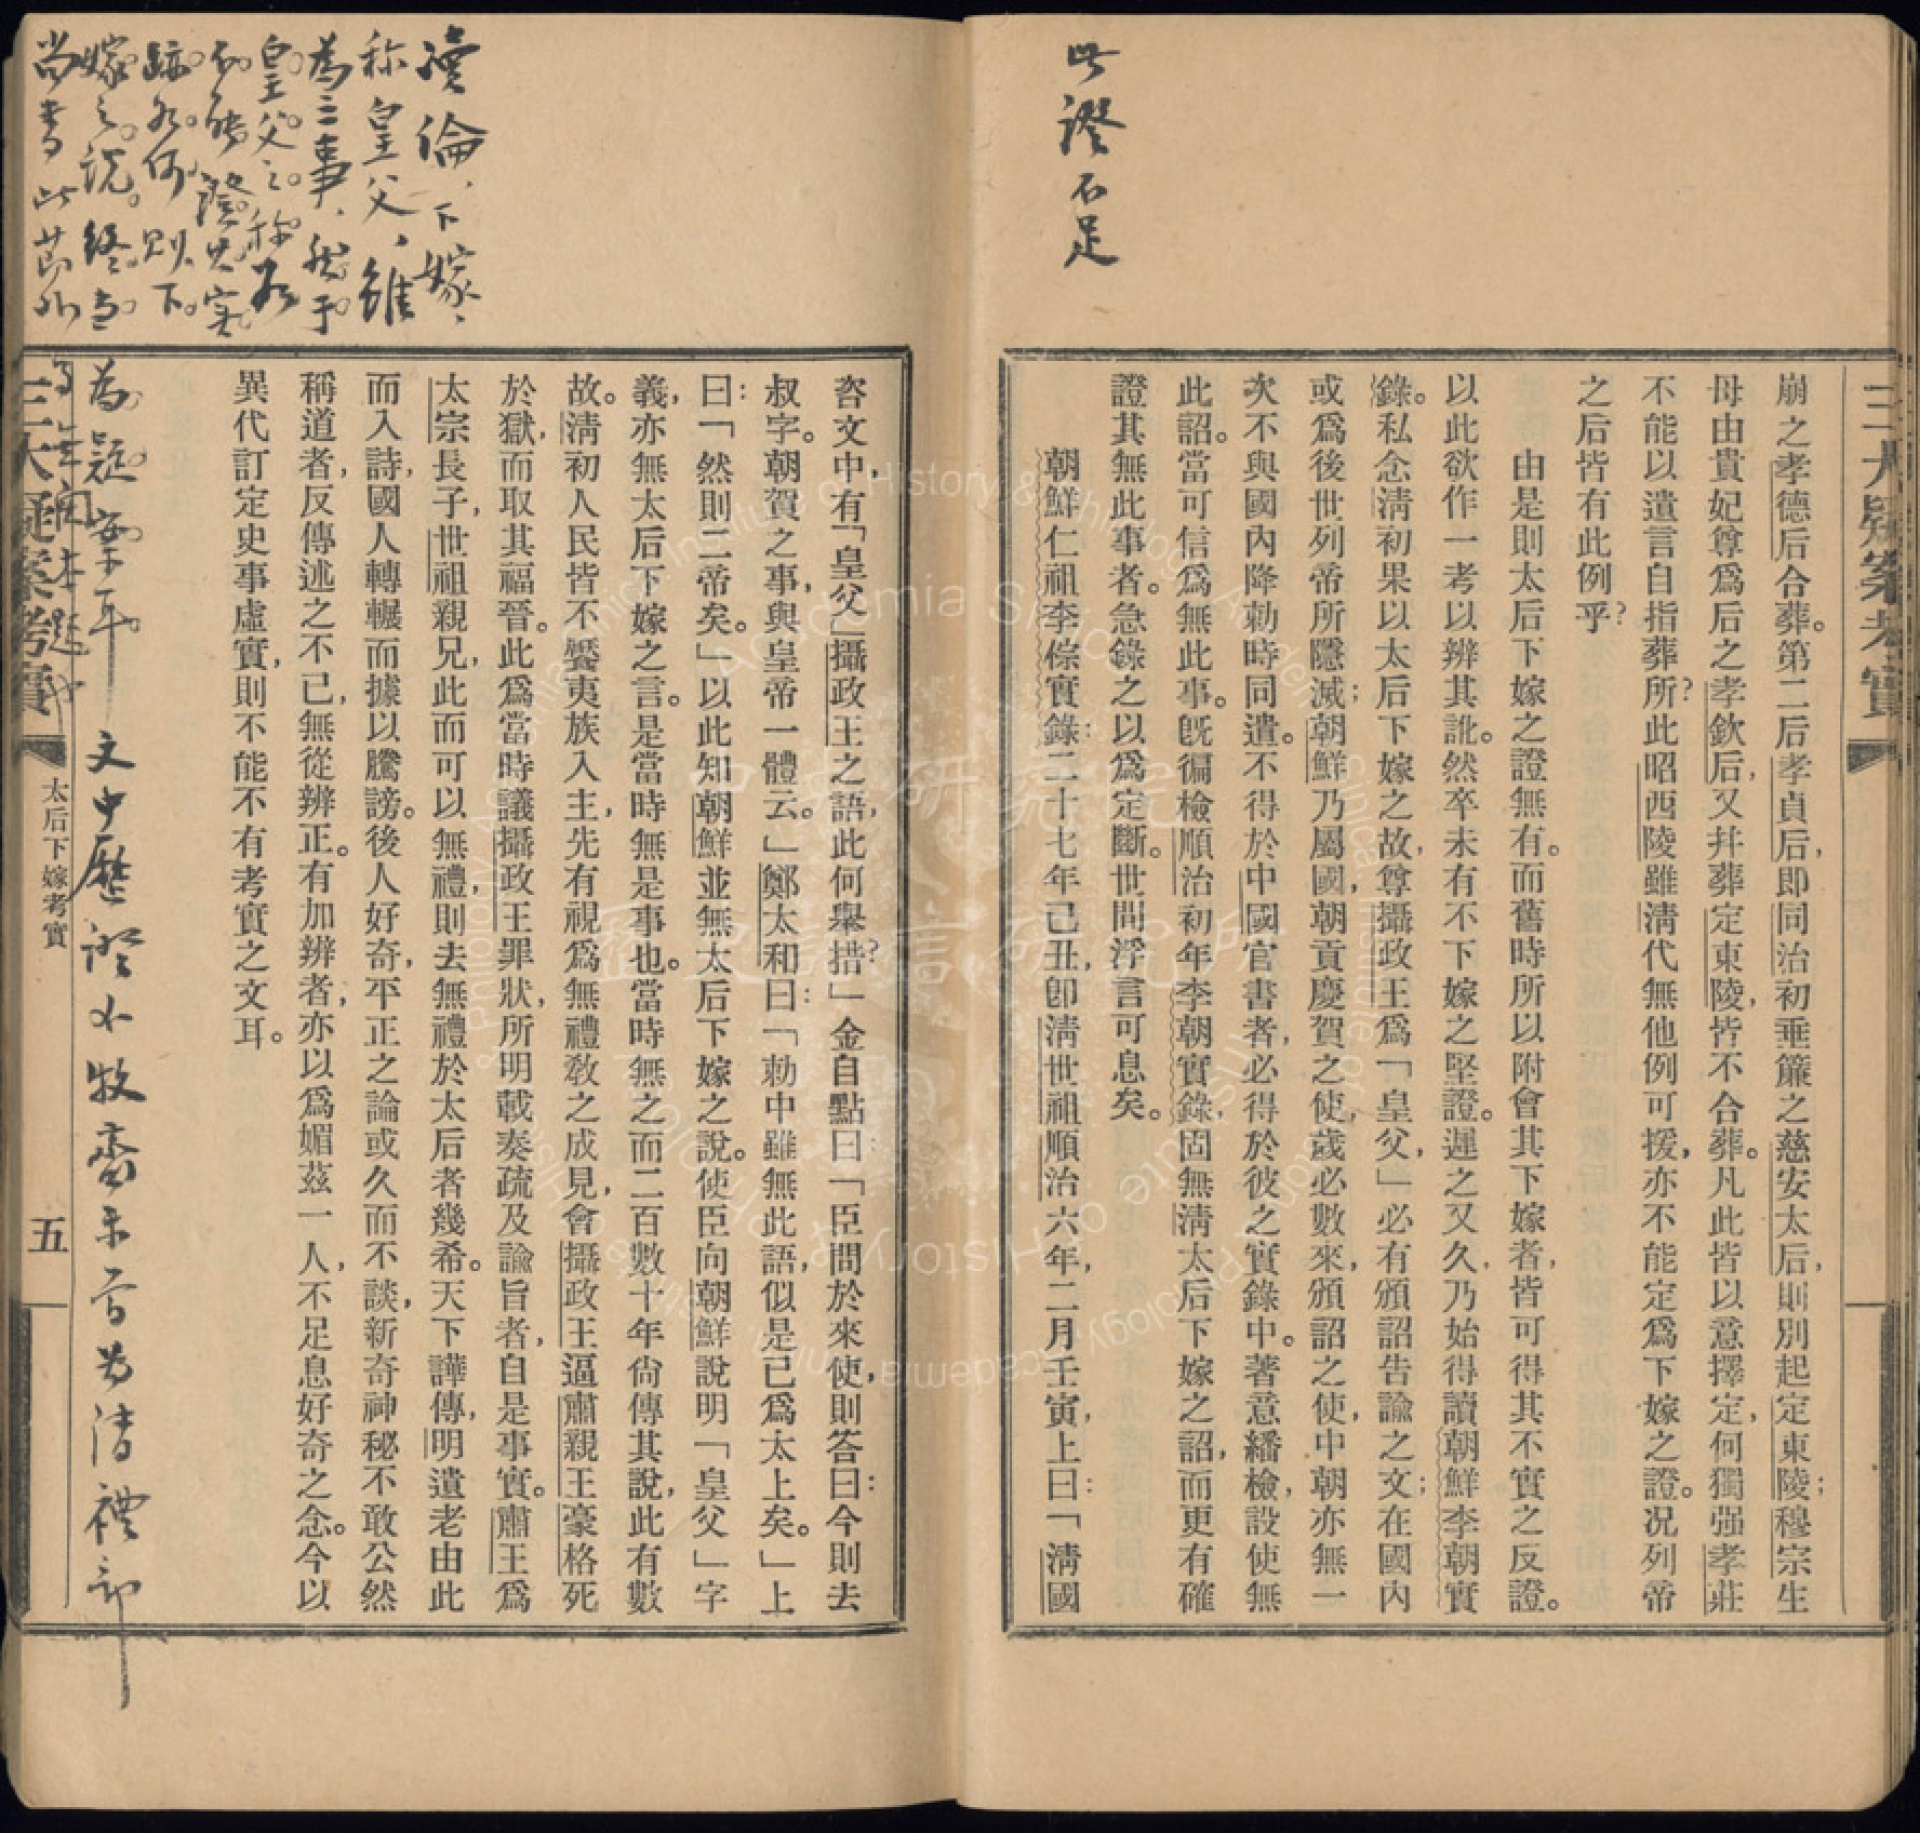 此證不足
三大疑案考實
崩之孝德后合葬。第二后孝貞后，即同治初垂簾之慈安太后，則別起定東陵；穆宗生
母由貴妃尊爲后之孝欽后，又幷葬定東陵，皆不合葬。凡此皆以意擇定，何獨强孝莊
不能以遺言自指葬所？此昭西陵雖淸代無他例可援，亦不能定爲下嫁之證。况列帝
之后皆有此例乎？
由是則太后下嫁之證無有。而舊時所以附會其下嫁者，皆可得其不實之反證。
以此欲作一考以辨其訛。然卒未有不下嫁之堅證。遲之又久，乃始得讀朝鮮李朝實
錄。私念淸初果以太后下嫁之故，尊攝政王爲「皇父」必有頒詔告諭之文；在國內
或爲後世列帝所隱滅；朝鮮乃屬國，朝貢慶賀之使，歲必數來，頒詔之使，中朝亦無一
次不與國內降勅時同遣。不得於中國官書者，必得於彼之實錄中。著意繙檢，設使無
此詔。當可信爲無此事。旣徧檢順治初年李朝實錄，固無淸太后下嫁之詔，而更有確
證其無此事者。急錄之以爲定斷。世間浮言可息矣。
朝鮮仁祖李倧實錄：二十七年己丑，卽淸世祖順治六年，二月壬寅，上曰：「淸國
咨文中，有「皇父」攝政王之語，此何舉措？」金自點曰：「臣問於來使，則答曰：今則去
叔字。朝賀之事，與皇帝一體云。」鄭太和曰：「勅中雖無此語，似是已爲太上矣。」上
曰：「然則二帝矣。」以此知朝鮮並無太后下嫁之說。使臣向朝鮮說明「皇父」字
義，亦無太后下嫁之言。是當時無是事也。當時無之而二百數十年尙傳其說，此有數
故。淸初人民皆不饜夷族入主，先有視爲無禮敎之成見，會攝政王逼肅親王豪格死
於獄，而取其福晉。此爲當時議攝政王罪狀，所明載奏疏及諭旨者，自是事實。肅王爲
太宗長子，世祖親兄，此而可以無禮，則去無禮於太后者幾希。天下譁傳，明遺老由此
而入詩，國人轉輾而據以騰謗。後人好奇，平正之論或久而不談，新奇神秘不敢公然
稱道者，反傳述之不已，無從辨正。有加辨者，亦以爲媚茲一人，不足息好奇之念。今以
異代訂定史事虛實，則不能不有考實之文耳。
瀆倫、下嫁、
称皇父，雖
爲三事，然于
皇父之称爲
不能證其實
跡如何，則下
嫁之說終當
尚書此節
爲疑案耳
文中歷證
牧齋未嘗爲清禮部
三大疑案考實
太后下嫁考實
五